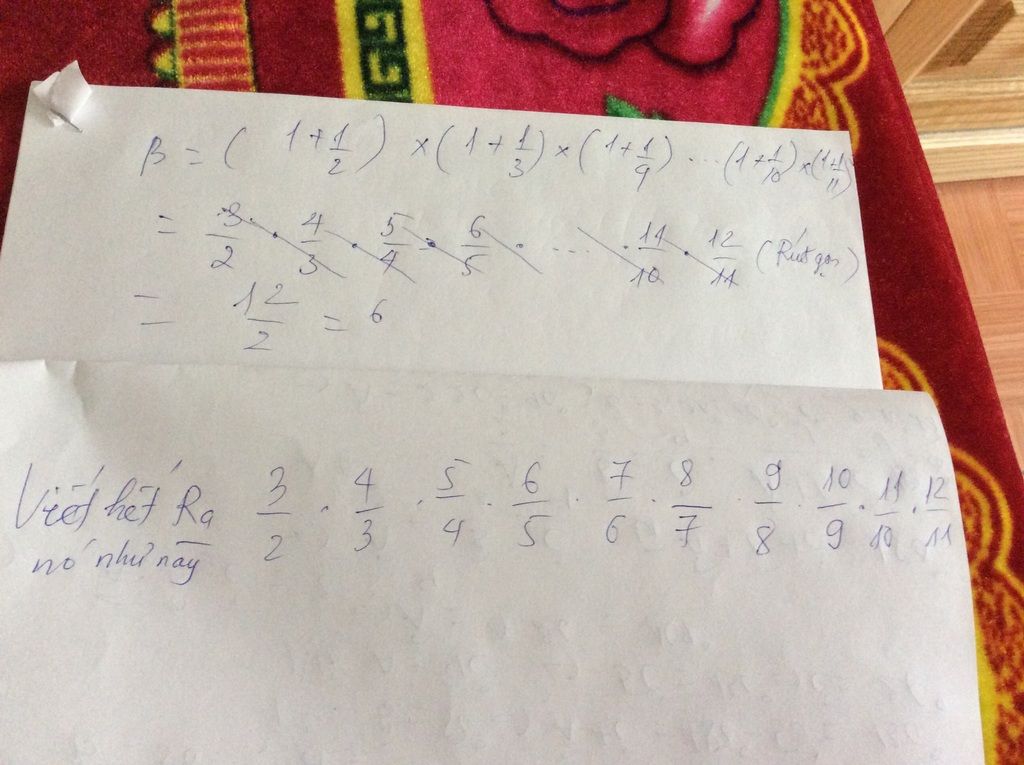 B = ( 1 + 1/2 ) × ( 1 + 1/3 ) × ( 1 + 1/4 ) ... ( 1 + 1/10 ) × ( 1 + 1/11 )
= 3/2 . 4/3 . 5/4 . 6/5 . ... . 11/10 . 12/11 (Rút gọn)
= 12/2 = 6
Viết hết Ra 3/2 . 4/3 . 5/4 . 6/5 . 7/6 . 8/7 . 9/8 . 10/9 . 11/10 . 12/11
nó như này